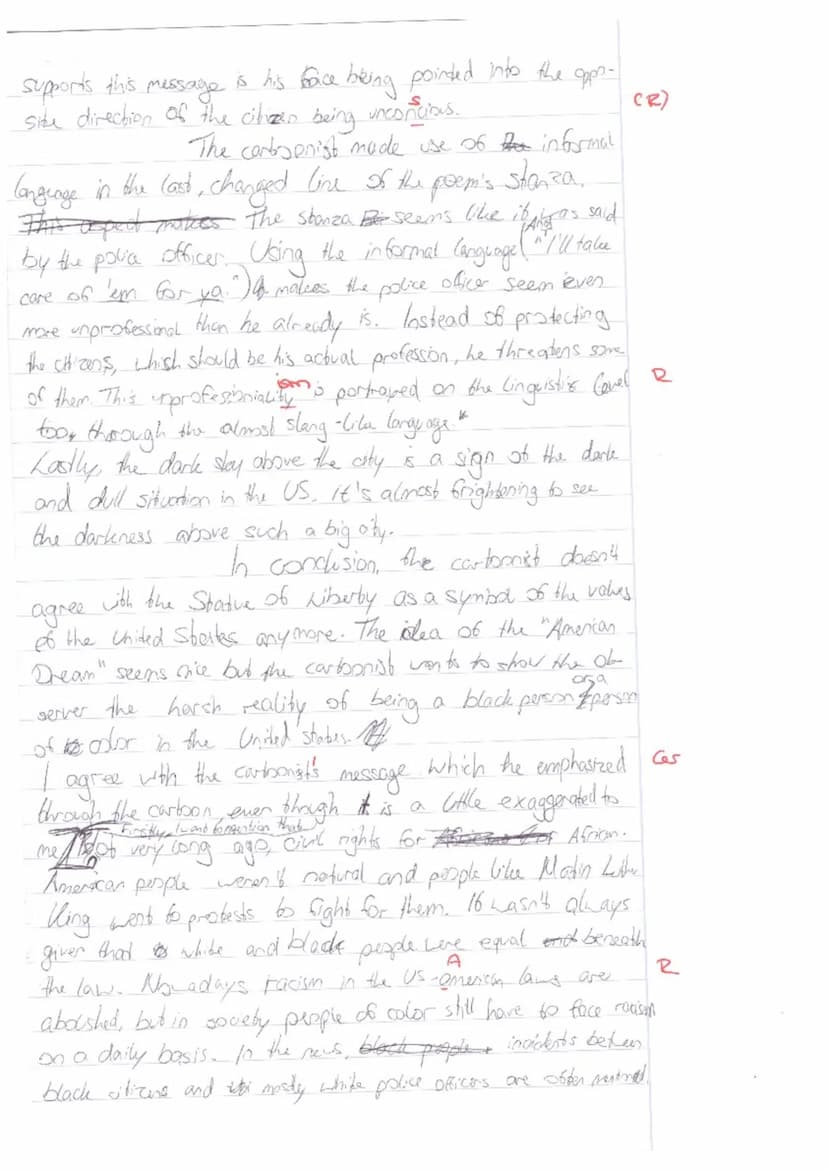 supports this message is his face being pointed into the oppo-
site direction of the citizen being unconscious.
(R)
The cartoonist made use of informal
language in the last, changed line of the poem's stanza.
This aspect makes The stanza seems like it was said
by the police officer. Using the informal language ("I'll take
care of 'em for ya.") makes the police officer seem even
more unprofessional than he already is. Instead of protecting
the citizens, which should be his actual profession, he threatens some
of them. This unprofessionality ism is portrayed on the linguistic level R
too, through the almost slang-like language.
Lastly, the dark sky above the city is a sign of the dark
and dull situation in the US. It's almost frightening to see
the darkness above such a big city.
In conclusion, the cartoonist doesn't
agree with the Statue of Liberty as a symbol of the values
of the United States anymore. The idea of the "American
Dream" seems nice but the cartoonist wants to show the ob-
server the harsh reality of being a black person or a person
of color in the United States.
I agree with the cartoonist's message which he emphasized Ges
through the cartoon even though it is a little exaggerated to
me. Firstly, I want to mention that not very long ago, civil rights for African-
American people weren't natural and people like Matin Luther
King went to protests to fight for them. It wasn't always
given that white and black people were equal beneath
the law. Nowadays racism in the US-American laws are R
abolished, but in society people of color still have to face racism
on a daily basis. In the news, black people incidents between
black citizens and mostly white police officers are often mentioned.